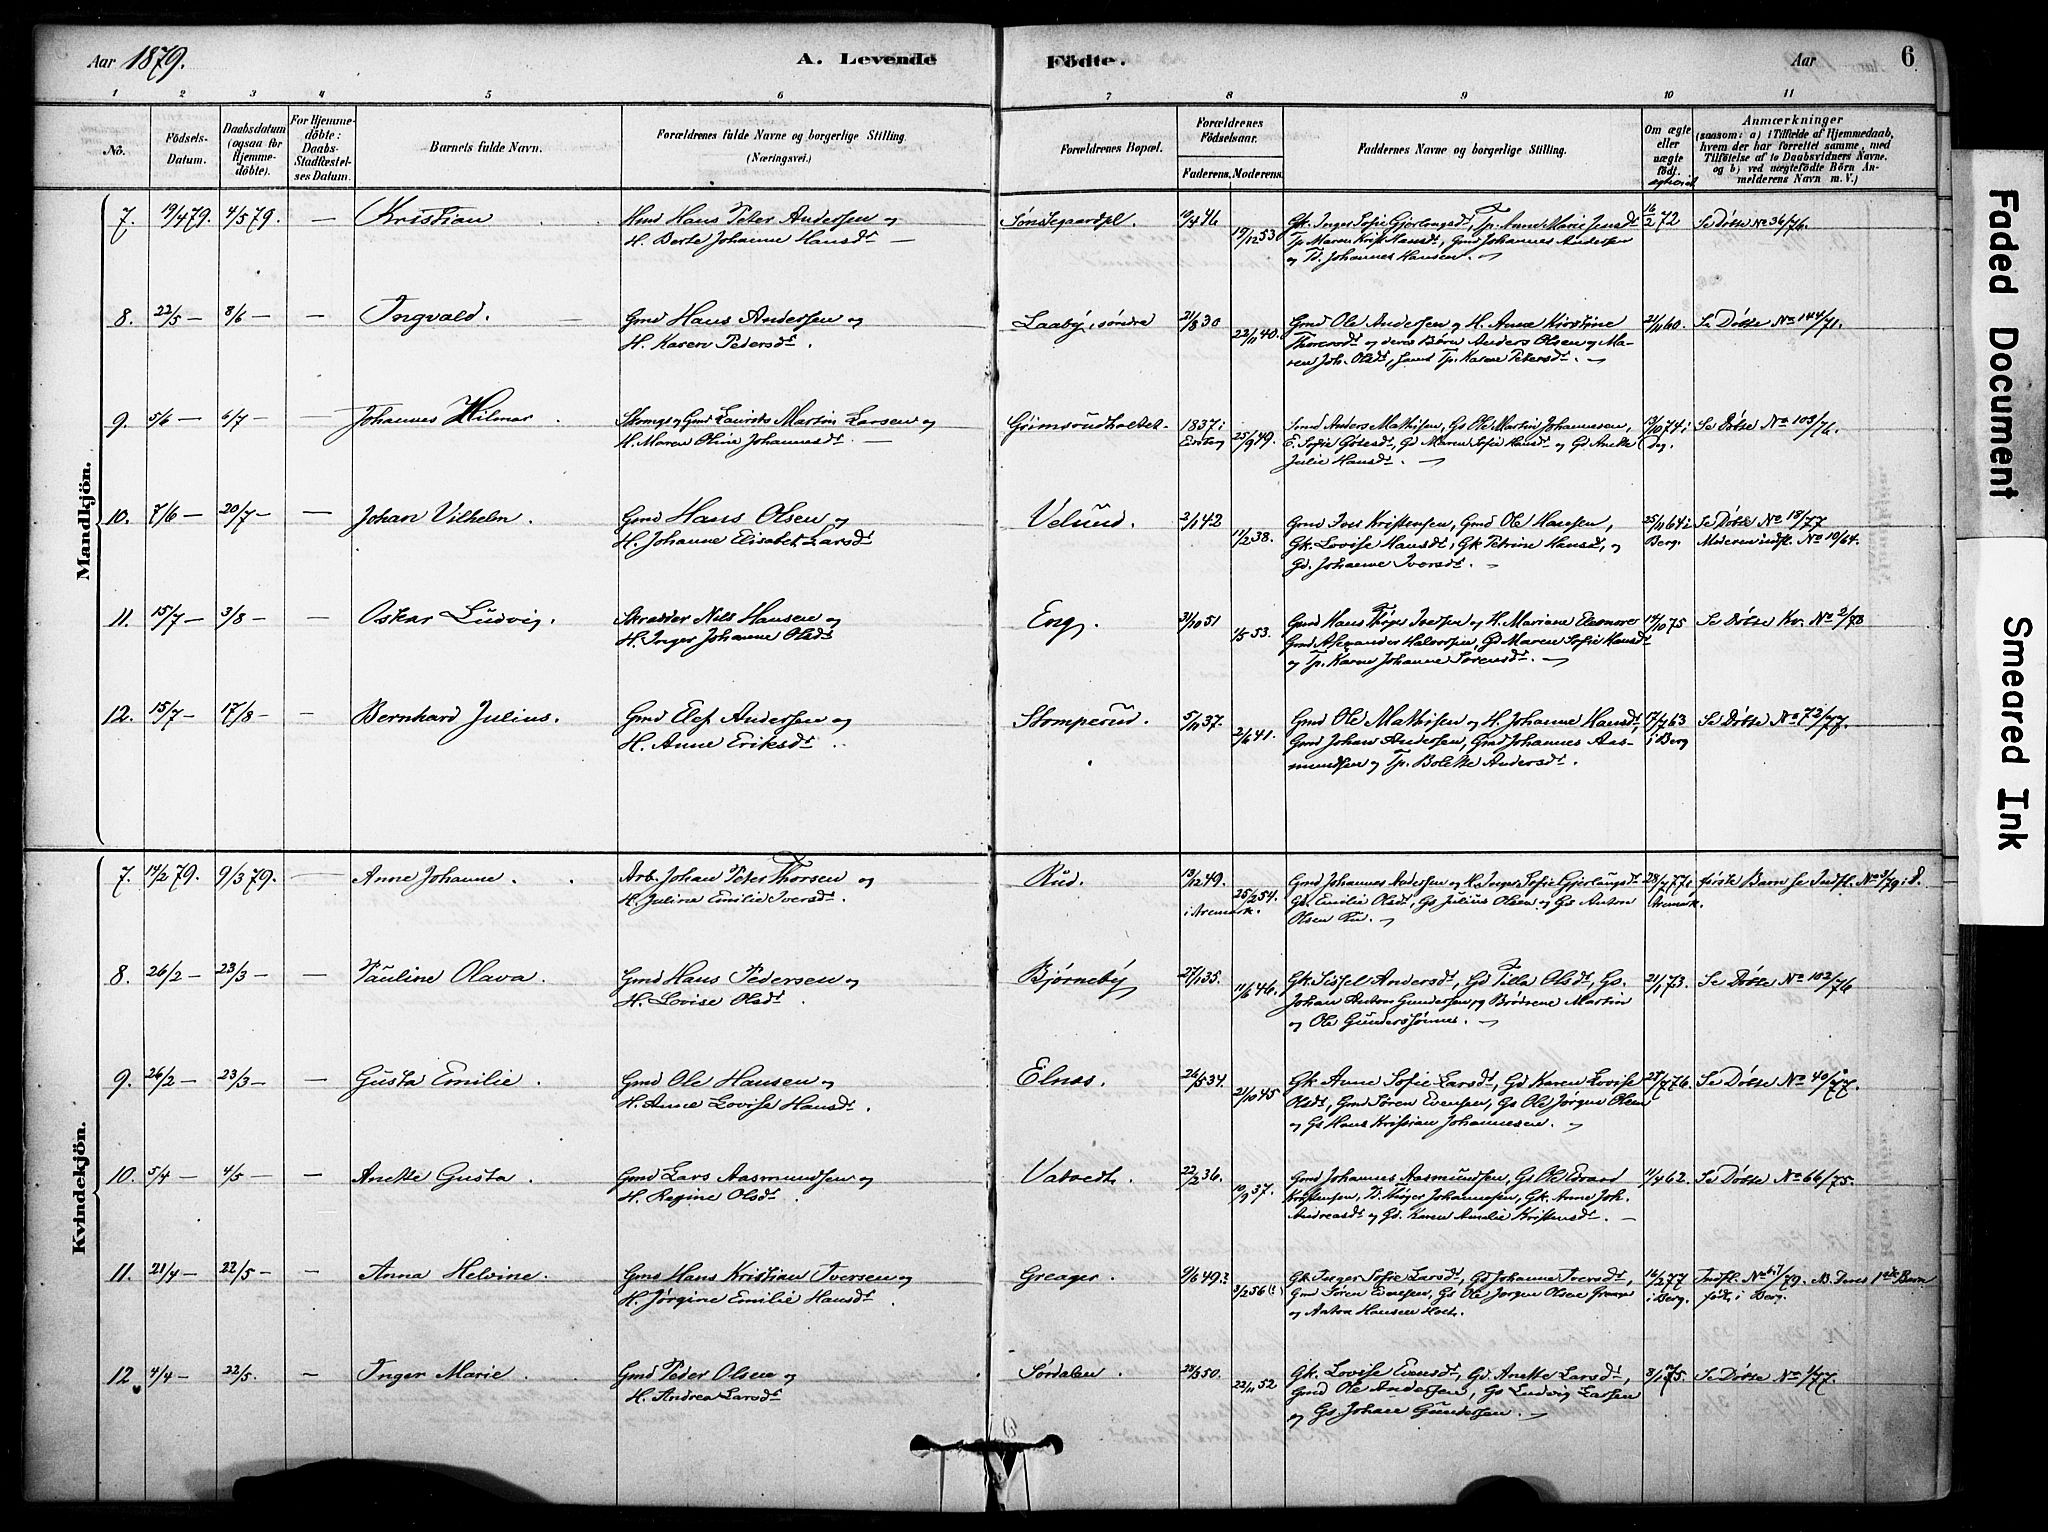 Aar 1879.
A. Levende Födte.
Aar
6
1 2 3 4 5 6 7 8 9 10 11
No.
Födsels-Datum.
Daabsdatum (ogsaa for Hjemme-döbte).
For Hjemme-döbte: Daabs-Stadfæstel-ses Datum.
Barnets fulde Navn.
Forældrenes fulde Navne og borgerlige Stilling.
(Næringsvei.)
Forældrenes Bopæl.
Forældrenes Födselsaar.
Faderens. Moderens.
Faddernes Navne og borgerlige Stilling.
Om ægte eller uægte födt.
Anmærkninger
(saasom: a) i Tilfælde af Hjemmedaab,
hvem der har forrettet samme, med
Tilföielse af to Daabsvidners Navne,
og b) ved uægtefödte Börn An-
melderens Navn m. V.)
Mandkjön.
7. 19/4 79. 4/5 79. — Kristian Gmd Hans Peter Andersen og
H. Berte Johanne Hansdt —
19/12 53
Gk. Inger Sofie Gjerlaugsdt, Tp. Anne Marie Jensdt
Tp. Maren Krist. Hansdt, Gmd Johannes Andersen
og Td. Johannes Hansen.
16/2 72 Se Döbte No 36/76.
8. 22/5 — 8/6 — — Ingvald. Gmd Hans Andersen og
H. Karen Pedersdt.
Laaby, söndre 21/8 30 22/11 40.
Gmd Ole Andersen og H. Anne Kirstine
Thoresdt og deres Börn Anders Olsen og Ma-
ren Joh. Olsdt, samt Tp. Karen Petersdt.
21/11 60. Se Döbte No 144/71.
9. 5/6 — 6/7 — — Johannes Hilmar. Gmd Laurits Martin Larsen og
H. Maren Oline Johannesdt. —
Grimsrudholtet. 1837 i 25/9 49.
Smd Anders Mathisen, Gs Ole Martin Johannessen,
Gd Maren Sofie Hansdt og Gd Anette
Julie Hansdt.
13/10 74 i Se Döbte No 103/76.
10. 7/6 — 20/7 — — Johan Vilhelm. Gmd Hans Olsen og
H. Johanne Elisabet Larsdt
Velund. 2/1 42 11/2 38.
Gmd Iver Kristensen, Gmd Ole Hansen,
Gk. Lovise Hansdt, Gk Petrine Hansdt, og
Gd. Johanne Iversdt.
25/11 64 i Berg. Se Döbte No 18/77
Moderen indfl. No 10/64.
11. 15/7 — 3/8 — — Oskar Ludvig. Skrædder Nils Hansen og
H. Inger Johanne Olsdt
Eng. 31/10 51 1/5 53.
Gmd Hans Iversen og H. Mariane Eleonore
Gmd Halvorsen, Gd Maren Sofie Hansdt
og Tp. Karen Johanne Sorensdt.
14/10 75 Se Döbte Kv. No 2/78
12. 15/7 — 17/8 — — Bernhard Julius. Gmd Elef Andersen og
H. Anne Eriksdt.
Stomperud. 5/11 37. 2/6 41.
Gmd Ole Mathisen og H. Johanne Hansdt,
Gmd Johan Andersen, Gmd Johannes Aas-
mundsen og Tp. Bolette Andersdt.
17/7 63 i Berg Se Döbte No 72/77.
Kvindekjön.
7. 14/2 79. 9/3 79. — Anne Johanne. Arb. Johan Peter Thorsen og
H. Juline Emilie Iversdt.
Rud. 13/12 49. i Aremark. 25/2 54.
Gmd Johannes Andersen og H. Inger Sofie Gjerlaugsdt
Gk. Emilie Olsdt, Gs Julius Olsen og Gs Anton
Olsen Ru.
28/7 77 i Aremark. förste Barn se Indfl. No 3/79 i d.
8. 26/2 — 23/3 — — Pauline Olava. Gmd Hans Pedersen og
H. Lovise Olsdt.
Björneby 27/1 35. 11/6 46.
Gk. Sissel Andersdt, Gd Tilla Olsdt, Gs.
Johan Anton Gundersen, og Brödrene Martin
og Ole Gunderssönner.
21/1 73. Se Döbte No 102/76
9. 26/2 — 23/3 — — Gusta Emilie. Gmd Ole Hansen og
H. Anne Lovise Hansdt.
Elnæs. 26/5 34. 21/10 45
Gk Anne Sofie Larsdt, Gd Karen Lovise
Olsdt, Gmd Sören Evensen, Gs Ole Jörgen Olsen
og Gs Hans Kristian Johannesen.
27/7 76. Se Döbte No 40/77.
10. 5/4 — 4/5 — — Anette Gusta. Gmd Lars Aasmundsen og
H. Regine Olsdt.
Vatvedt. 22/2 36. 10/9 37.
Gmd Johannes Aasmundsen, Gs Ole Edvard
Kristensen, Johannesen, Gk. Anne Joh.
Andreasdt og Gd. Karen Amalie Kristensdt.
11/4 62. Se Döbte No 66/75.
11. 21/4 — 22/5 — — Anna Helvine. Gmd Hans Kristian Iversen og
H. Jörgine Emilie Hansdt.
Greager. 9/6 49. 3/2 56
Gk. Inger Sofie Larsdt, Gd Johanne Iversdt,
Gmd Sören Evensen, Gs Ole Jörgen Olsen
og Anton Hansen Holt.
16/2 77 i Berg. Indfl. No 6,7/79. NB. Deres 1ste Barn
födt i Berg.
12 4/4 — 22/5. — Inger Marie. Gmd Peder Olsen og
H. Andrea Larsdt
Sördalen. 28/5 50. 23/11 52
Gk. Lovise Evensdt, Gd. Anette Larsdt,
Gmd Ole Andersen, Gs Ludvig Larsen
og Gs. Johan Gundersen.
8/1 75. Se Döbte No 1/77.
Faded Document
Smeared Ink